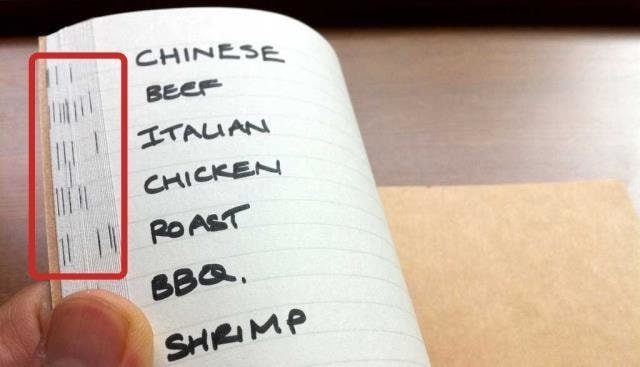 CHINESE
BEEF
ITALIAN
CHICKEN
ROAST
BBQ.
SHRIMP